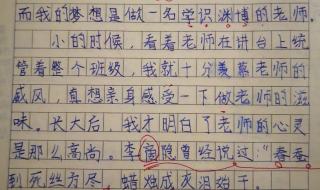 而我的梦想是做一名学识渊博的老师。
小的时候，看着老师在讲台上统
管着整个班级，我就十分羡慕老师的
威风，真想亲身感受一下做老师的滋
味。长大后，我才明白了老师的心灵
是那么高尚。李商隐曾经说过：“春蚕
到死丝方尽，蜡烛成灰泪始干